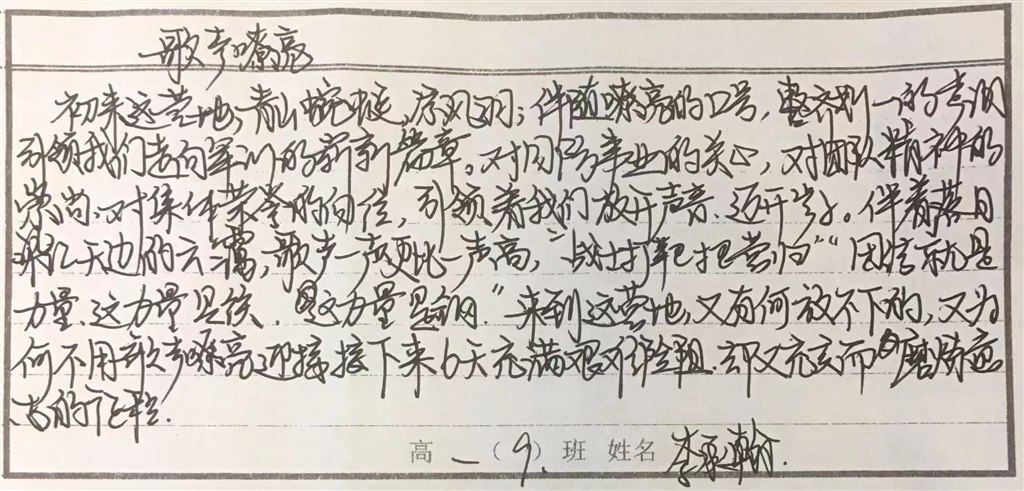 歌声嘹亮
初来这营地,青山蜿蜒,序风习习;伴随嘹亮的口号,整齐划一的步调
引领我们走向军训的崭新篇章。对同学事业的关心,对团队精神的
崇尚,对集体荣誉的向往,引领着我们放开声音,迈开步子。伴着落日
天边的云霭,歌声一声更比一声高,“战士打靶把营归”“团结就是
力量,这力量是铁,这力量是钢.”来到这营地,又有何放不下的,又为
何不用歌声嘹亮迎接接下来6天充满艰难险阻,却又充实而
的
高一(9)班 姓名 李承翰.